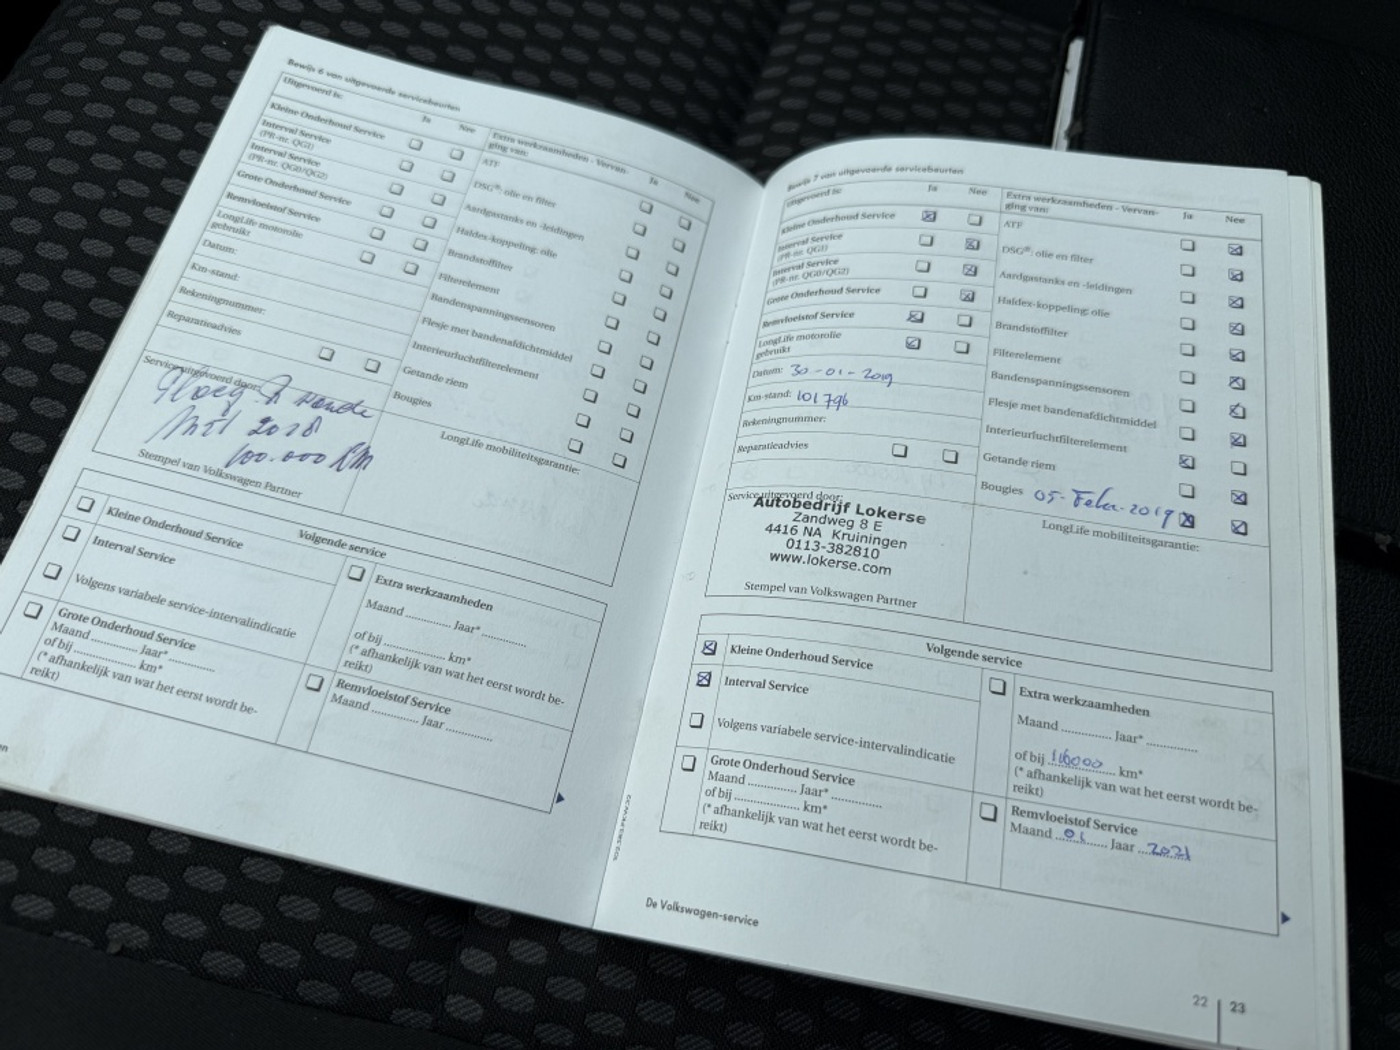 Bewijs 6 van uitgevoerde servicebeurten
Uitgevoerd is:
Ja Nee
Kleine Onderhoud Service
Interval Service
(PR-nr. QG1)
Interval Service
(PR-nr. QG0/QG2)
Grote Onderhoud Service
Remvloeistof Service
LongLife motorolie
gebruikt
Datum:
Km-stand:
Rekeningnummer:
Reparatieadvies
Extra werkzaamheden - Vervan-
ging van:
Ja Nee
ATF
DSG®: olie en filter
Aardgastanks en -leidingen
Haldex-koppeling: olie
Brandstoffilter
Filterelement
Bandenspanningssensoren
Flesje met bandenafdichtmiddel
Interieurluchtfilterelement
Getande riem
Bougies
Service uitgevoerd door:
2018
100.000 km
Stempel van Volkswagen Partner
LongLife mobiliteitsgarantie:
Volgende service
Kleine Onderhoud Service
Interval Service
Volgens variabele service-intervalindicatie
Grote Onderhoud Service
Maand ............ Jaar* ............
of bij ............ km*
(* afhankelijk van wat het eerst wordt be-
reikt)
Extra werkzaamheden
Maand ............ Jaar* ............
of bij ............ km*
(* afhankelijk van wat het eerst wordt be-
reikt)
Remvloeistof Service
Maand ............ Jaar ............
Bewijs 7 van uitgevoerde servicebeurten
Uitgevoerd is:
Ja Nee
Kleine Onderhoud Service
Interval Service
(PR-nr. QG1)
Interval Service
(PR-nr. QG0/QG2)
Grote Onderhoud Service
Remvloeistof Service
LongLife motorolie
gebruikt
Datum: 30-01-2019
Km-stand: 101796
Rekeningnummer:
Reparatieadvies
Extra werkzaamheden - Vervan-
ging van:
Ja Nee
ATF
DSG®: olie en filter
Aardgastanks en -leidingen
Haldex-koppeling: olie
Brandstoffilter
Filterelement
Bandenspanningssensoren
Flesje met bandenafdichtmiddel
Interieurluchtfilterelement
Getande riem
Bougies 05-Febr-2019
Service uitgevoerd door:
Autobedrijf Lokerse
Zandweg 8 E
4416 NA Kruiningen
0113-382810
www.lokerse.com
Stempel van Volkswagen Partner
LongLife mobiliteitsgarantie:
Volgende service
Kleine Onderhoud Service
Interval Service
Volgens variabele service-intervalindicatie
Grote Onderhoud Service
Maand ............ Jaar* ............
of bij ............ km*
(* afhankelijk van wat het eerst wordt be-
reikt)
Extra werkzaamheden
Maand ............ Jaar* ............
of bij 116000 km*
(* afhankelijk van wat het eerst wordt be-
reikt)
Remvloeistof Service
Maand 01 Jaar 2021
De Volkswagen-service
22 | 23